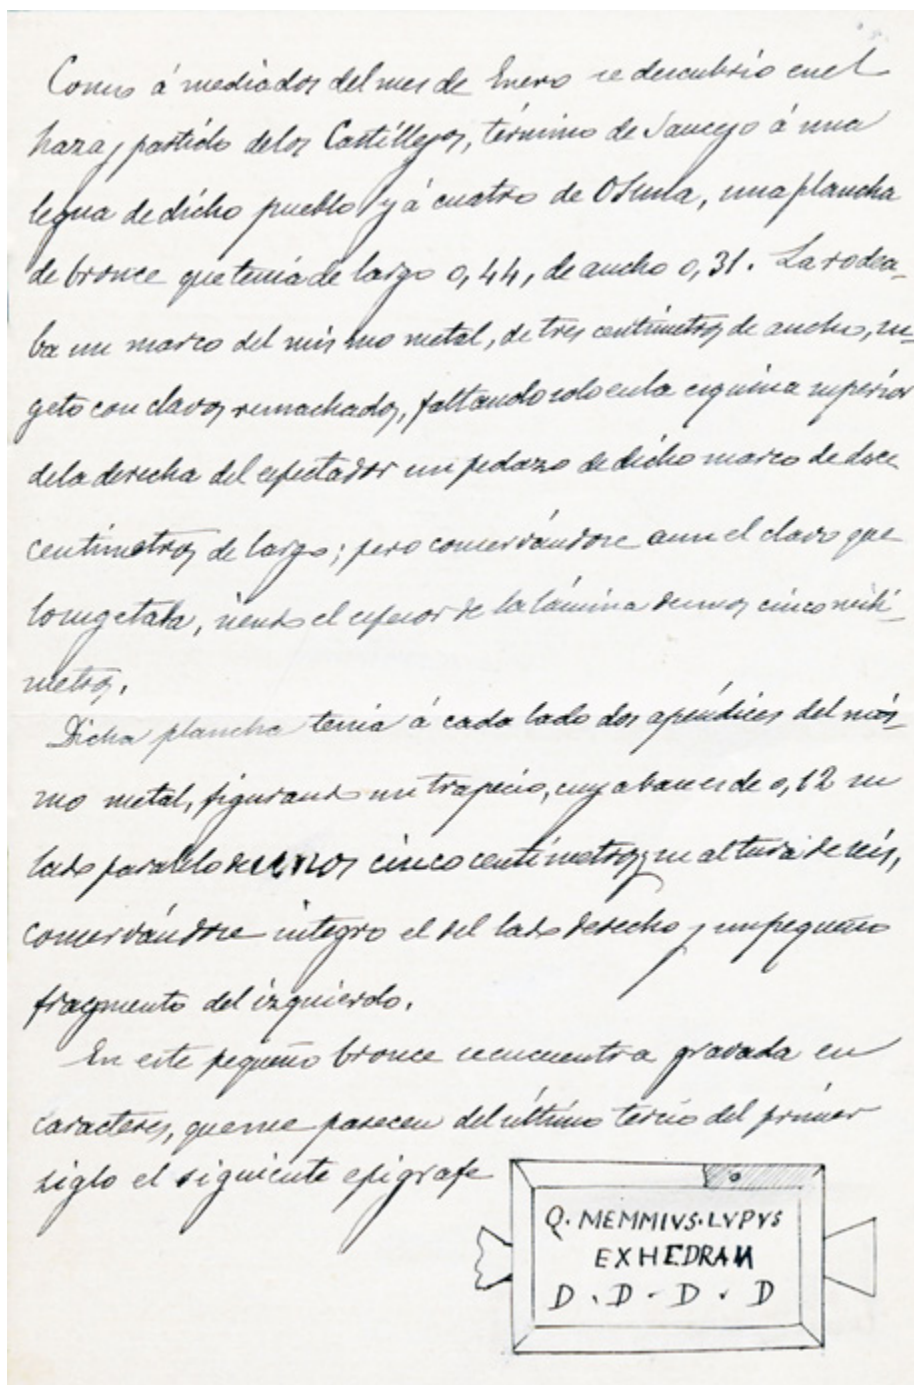 Como á mediados del mes de Enero se descubrio en el
haza, partido de los Castillejos, término de Saucejo á una
legua de dicho pueblo y á cuatro de Osuna, una plancha
de bronce que tenia de largo 0,44, de ancho 0,31. La rodea-
ba un marco del mismo metal, de tres centimetros de ancho, su-
geto con clavos remachados, faltando solo en la esquina superior
de la derecha del espectador un pedazo de dicho marco de doce
centimetros de largo; pero conservándose aun el clavo que
lo sugetaba, siendo el espesor de la lámina de unos cinco milí-
metros.
Dicha plancha tenia á cada lado dos apéndices del mis-
mo metal, figurando un trapecio, cuya base es de 0,12 su
lado paralelo de unos cinco centimetros y su altura de seis,
conservándose integro el del lado derecho y un pequeño
fragmento del izquierdo.
En este pequeño bronce se encuentra gravada en
caracteres, que me parecen del último tercio del primer
siglo el siguiente epigrafe
Q. MEMMIVS. LVPVS
EXHEDRAM
D . D . D . D